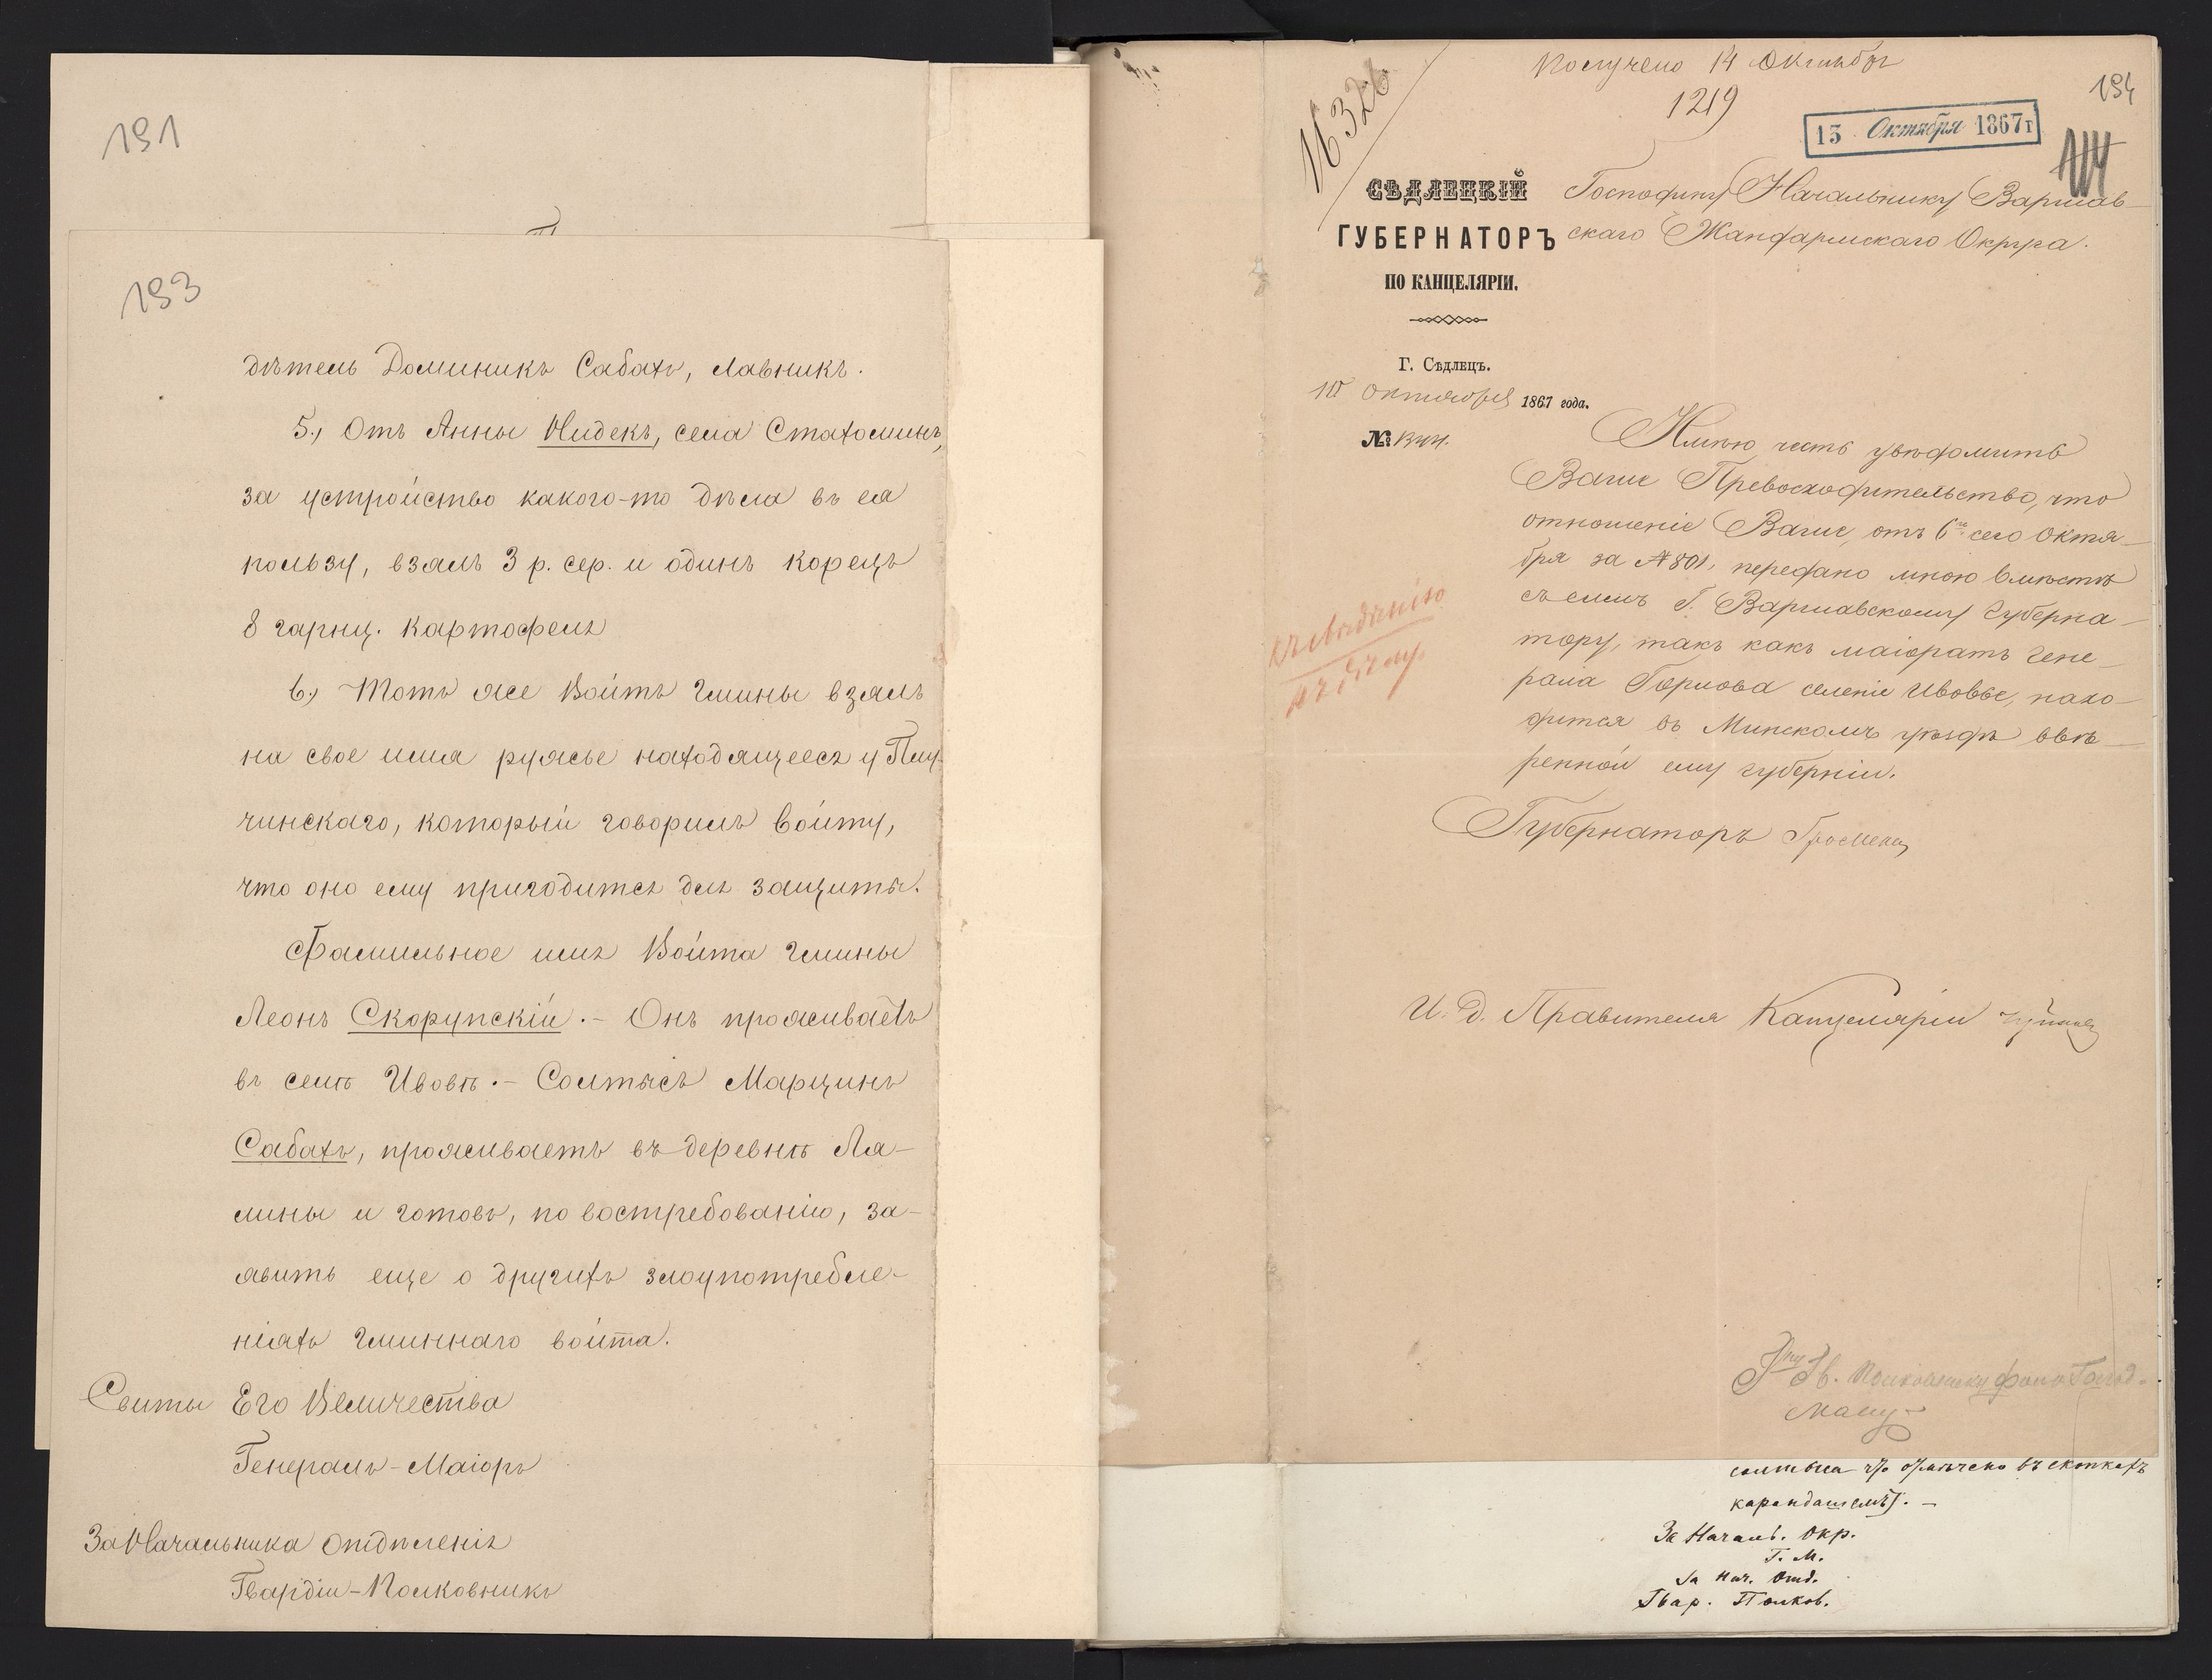 191
193
дѣтель Доминикъ Сабахъ, лавникъ.
5., Отъ Анны Нидекъ, села Стахоминъ,
за устройство какого-то дѣла въ ея
пользу, взялъ 3 р. сер. и одинъ корецъ
8 гарнц. картофеля
6., Тотъ же Войтъ гмины взялъ
на свое имя ружье находящееся у
чинскаго, который говорилъ войту,
что оно ему пригодится для защиты.
Фамильное имя Войта гмины
Леонъ Скорупскій. - Онъ проживаетъ
въ селѣ Ивовѣ. - Солтысъ Марцинъ
Сабахъ, проживаетъ въ деревнѣ Ля-
лины и готовъ, по востребованію, за-
явить еще о другихъ злоупотребле-
ніяхъ гминнаго войта.
Свиты Его Величества
Генералъ-Маіоръ
За Начальника отдѣленія
Гвардіи-Полковникъ
Получено 14 Октября
1219
16326
194
13 Октября 1867 г
114
СѢДЛЕЦКІЙ
ГУБЕРНАТОРЪ
ПО КАНЦЕЛЯРІИ.
Г. Сѣдлецъ.
10 Октября 1867 года.
№
Господину Начальнику Варшав-
скаго Жандармскаго Округа.
Имѣю честь увѣдомить
Ваше Превосходительство, что
отношеніе Ваше, отъ 6го сего Октя-
бря за № 801, передано мною вмѣстѣ
съ симъ Г. Варшавскому Губерна-
тору, такъ какъ маіоратъ Гене-
рала Горлова селеніе Ивовье, нахо-
дится въ Минскомъ уѣздѣ ввѣ-
ренной ему губерніи.
къ свѣдѣнію
къ дѣлу.
Губернаторъ Громека
И. Д. Правителя Канцеляріи
Гв. Полковнику фонъ
ману
солтыса что отмѣчено въ скопкахъ
карандашемъ). -
За Началь. Окр.
Г. М.
За Нач. Отд.
Гвар. Полков.